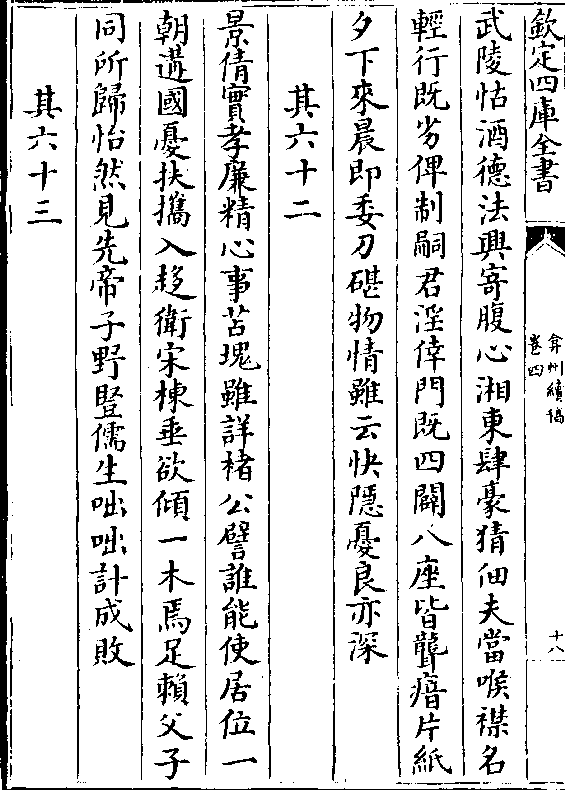 欽定四庫全書
弇州續稿
卷四
十八
武陵怙酒德法興寄腹心湘東肆豪猜佃夫當喉襟名
輕行既劣俾制嗣君淫倖門既四闢八座皆聾瘖片紙
夕下來晨即委刀碪物情雖云快隱憂良亦深
其六十二
景倩實孝廉精心事苫塊雖詳楮公譬誰能使居位一
朝遘國憂扶攜入趍衛宋棟垂欲傾一木焉足賴父子
同所歸怡然見先帝子野豎儒生咄咄計成敗
其六十三